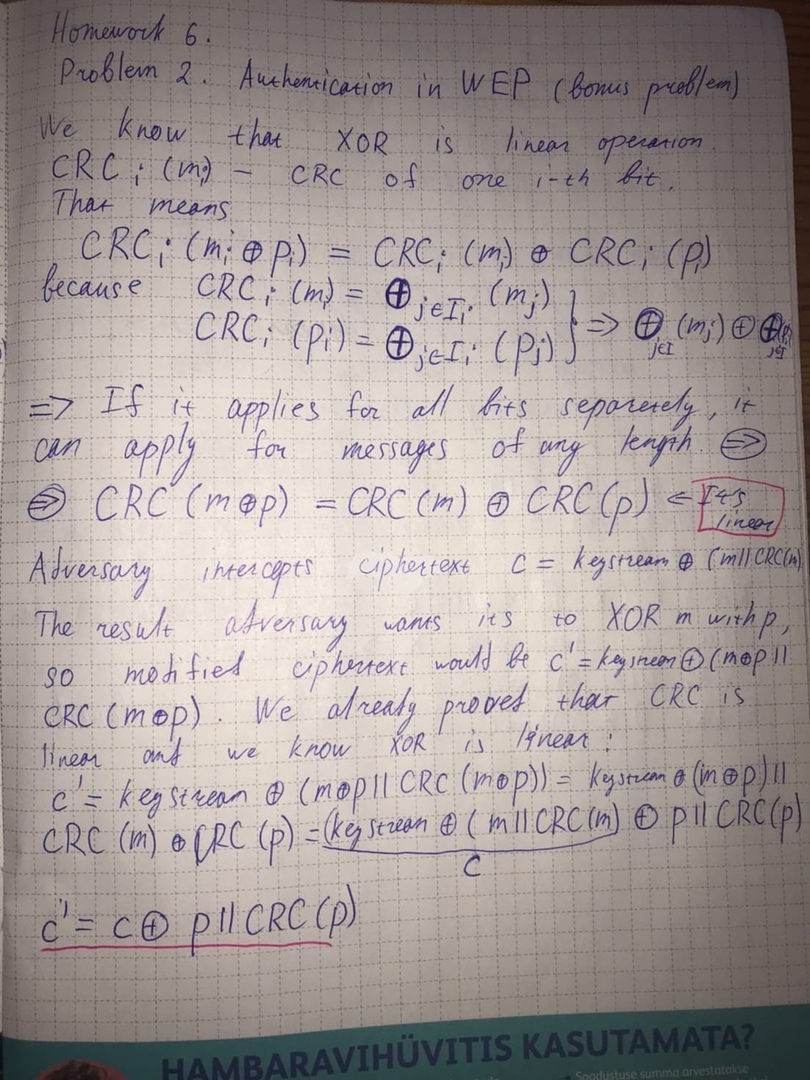 Homework 6.
Problem 2. Authentication in WEP (bonus problem)
We know that XOR is linear operation.
CRC i (mi) – CRC of one i-th bit.
That means
CRC i (mi ⊕ pi) = CRC i (mi) ⊕ CRC i (pi)
because CRC i (mi) = ⊕ j∈Ii (mj)
CRC i (pi) = ⊕ j∈Ii (pj) } => ⊕ j∈I (mj) ⊕ ⊕ j∈I (pj)
=> If it applies for all bits separetely, it
can apply for messages of any length. =>
=> CRC (m⊕p) = CRC (m) ⊕ CRC (p) <= It's
linear
Adversary intercepts ciphertext c = keystream ⊕ (m||CRC(m)
The result adversary wants its to XOR m with p,
so modified ciphertext would be c' = keystream ⊕ (m⊕p ||
CRC (m⊕p). We already proved that CRC is
linear and we know XOR is linear:
c' = keystream ⊕ (m⊕p || CRC (m⊕p)) = keystream ⊕ (m⊕p) ||
CRC (m) ⊕ CRC (p) = (keystream ⊕ (m || CRC(m) ⊕ p || CRC(p)
c
c' = c ⊕ p || CRC (p)
HAMBARAVIHÜVITIS KASUTAMATA?
Soodustuse summa arvestatakse